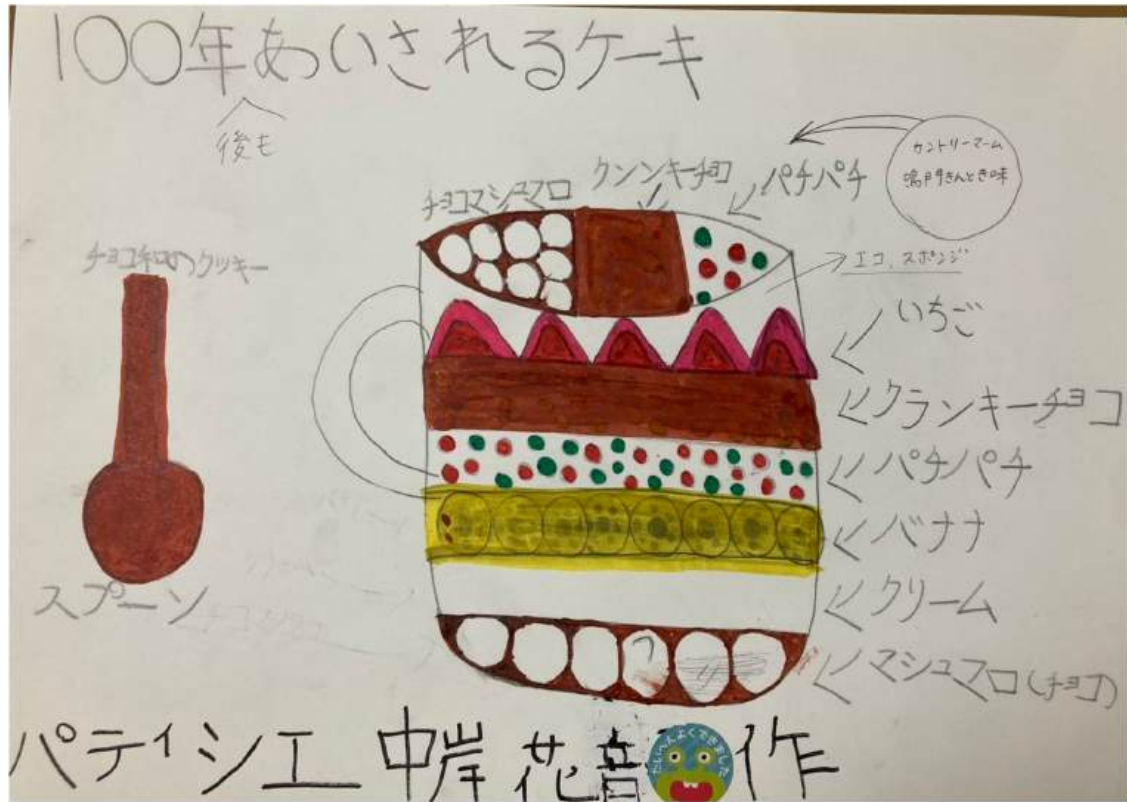 100年あいされるケーキ
後も
カントリーマーム
鳴門きんとき味
チョコマシュマロ
クンンキーチョコ
パチパチ
チョコ和のクッキー
エコ、スポンジ
いちご
クランキーチョコ
パチパチ
バナナ
クリーム
スプーン
マシュマロ(チョコ)
パティシエ 中岸 花音 作
たいへんよくできました